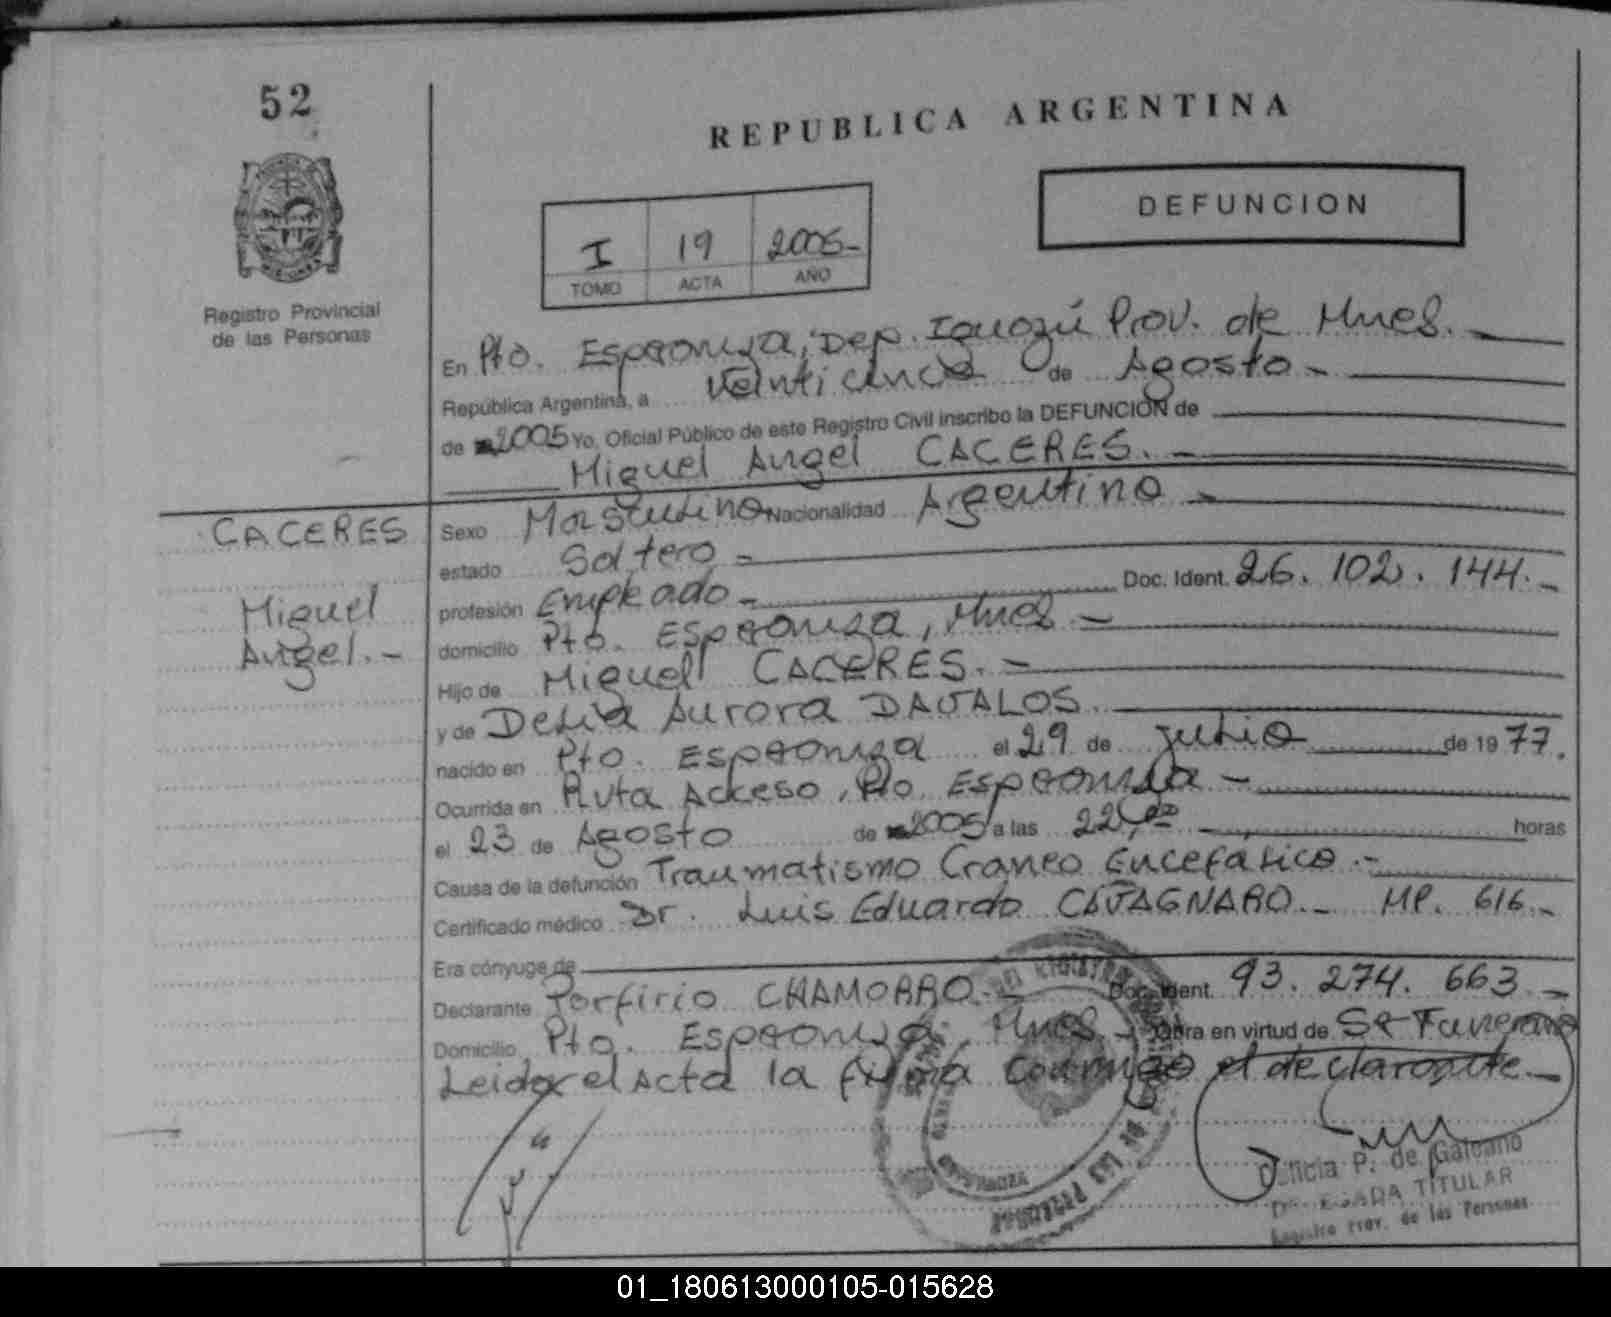 52
REPUBLICA ARGENTINA
DEFUNCION
I 19 2005-
TOMO ACTA AÑO
Registro Provincial
de las Personas
En Pto. Esperanza, Dep. Iguazú Prov. de Mnes.-
República Argentina, a veinticinco de Agosto-
de 2005 Yo, Oficial Público de este Registro Civil inscribo la DEFUNCION de
Miguel Angel CACERES.-
CACERES
Miguel
Angel.-
Sexo Masculino Nacionalidad Argentino-
estado Soltero-
profesión Empleado- Doc. Ident. 26.102.144.-
domicilio Pto. Esperanza, Mnes-
Hijo de Miguel CACERES.-
y de Delia Aurora DAVALOS
nacido en Pto. Esperanza el 29 de julio de 1977.
Ocurrida en Ruta Acceso, Pto Esperanza-
el 23 de Agosto de 2005 a las 22,00 horas
Causa de la defunción Traumatismo Craneo Encefalico.-
Certificado médico Dr. Luis Eduardo CAVAGNARO.- MP. 616.-
Era cónyuge de
Declarante Porfirio CHAMORRO.- Doc. Ident. 93.274.663.-
Domicilio Pto. Esperanza, Mnes- Obra en virtud de Se Funerario
Leida el Acta la firma conmigo el declarante.-
P. de Galeano
DELEGADA TITULAR
Registro Prov. de las Personas
01_180613000105-015628